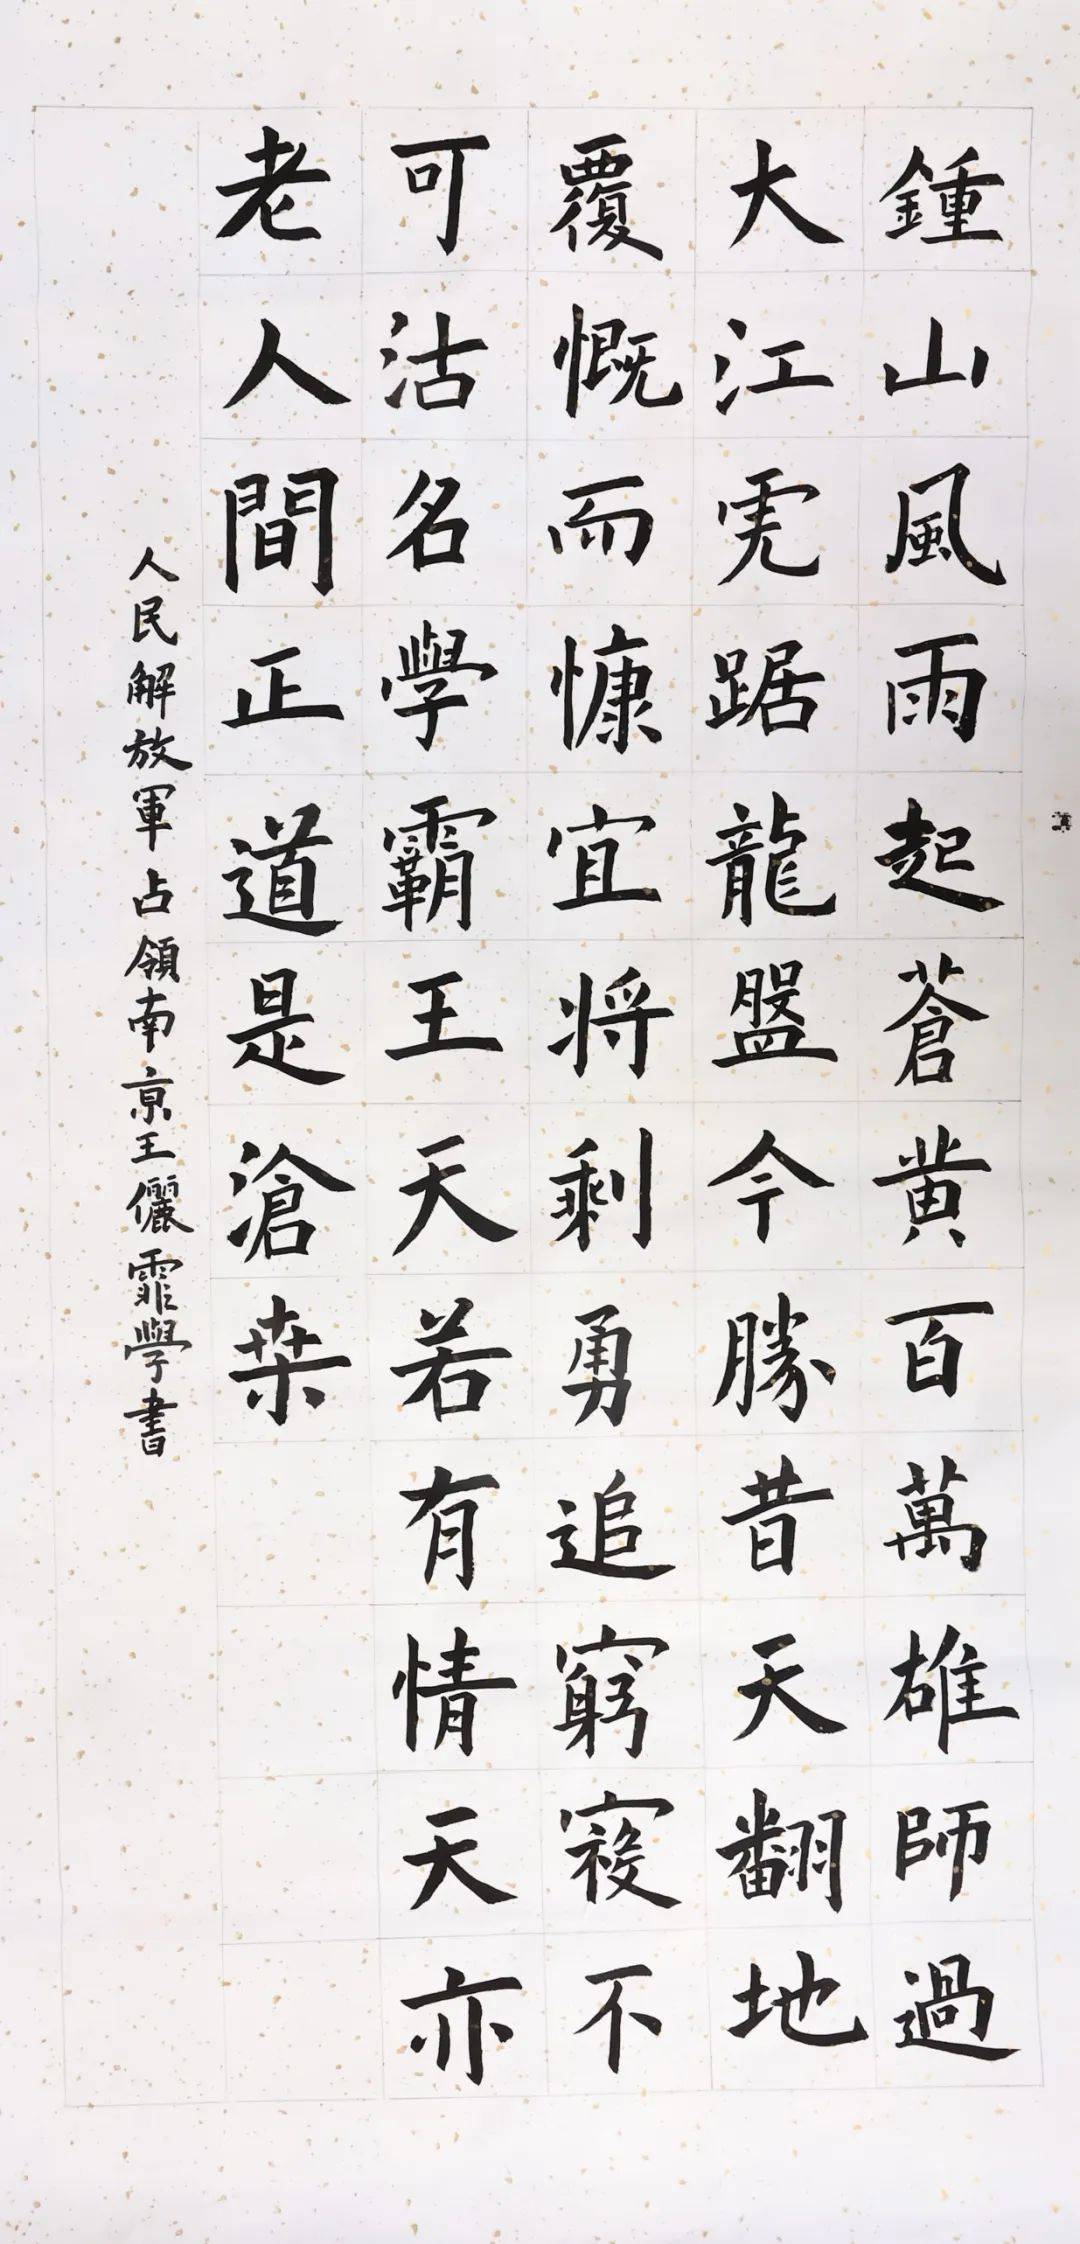 鍾山風雨起蒼黄百萬雄師過
大江虎踞龍盤今勝昔天翻地
覆慨而慷宜将剩勇追窮寇不
可沽名學霸王天若有情天亦
老人間正道是滄桒
人民解放軍占領南亰王儷霏學書